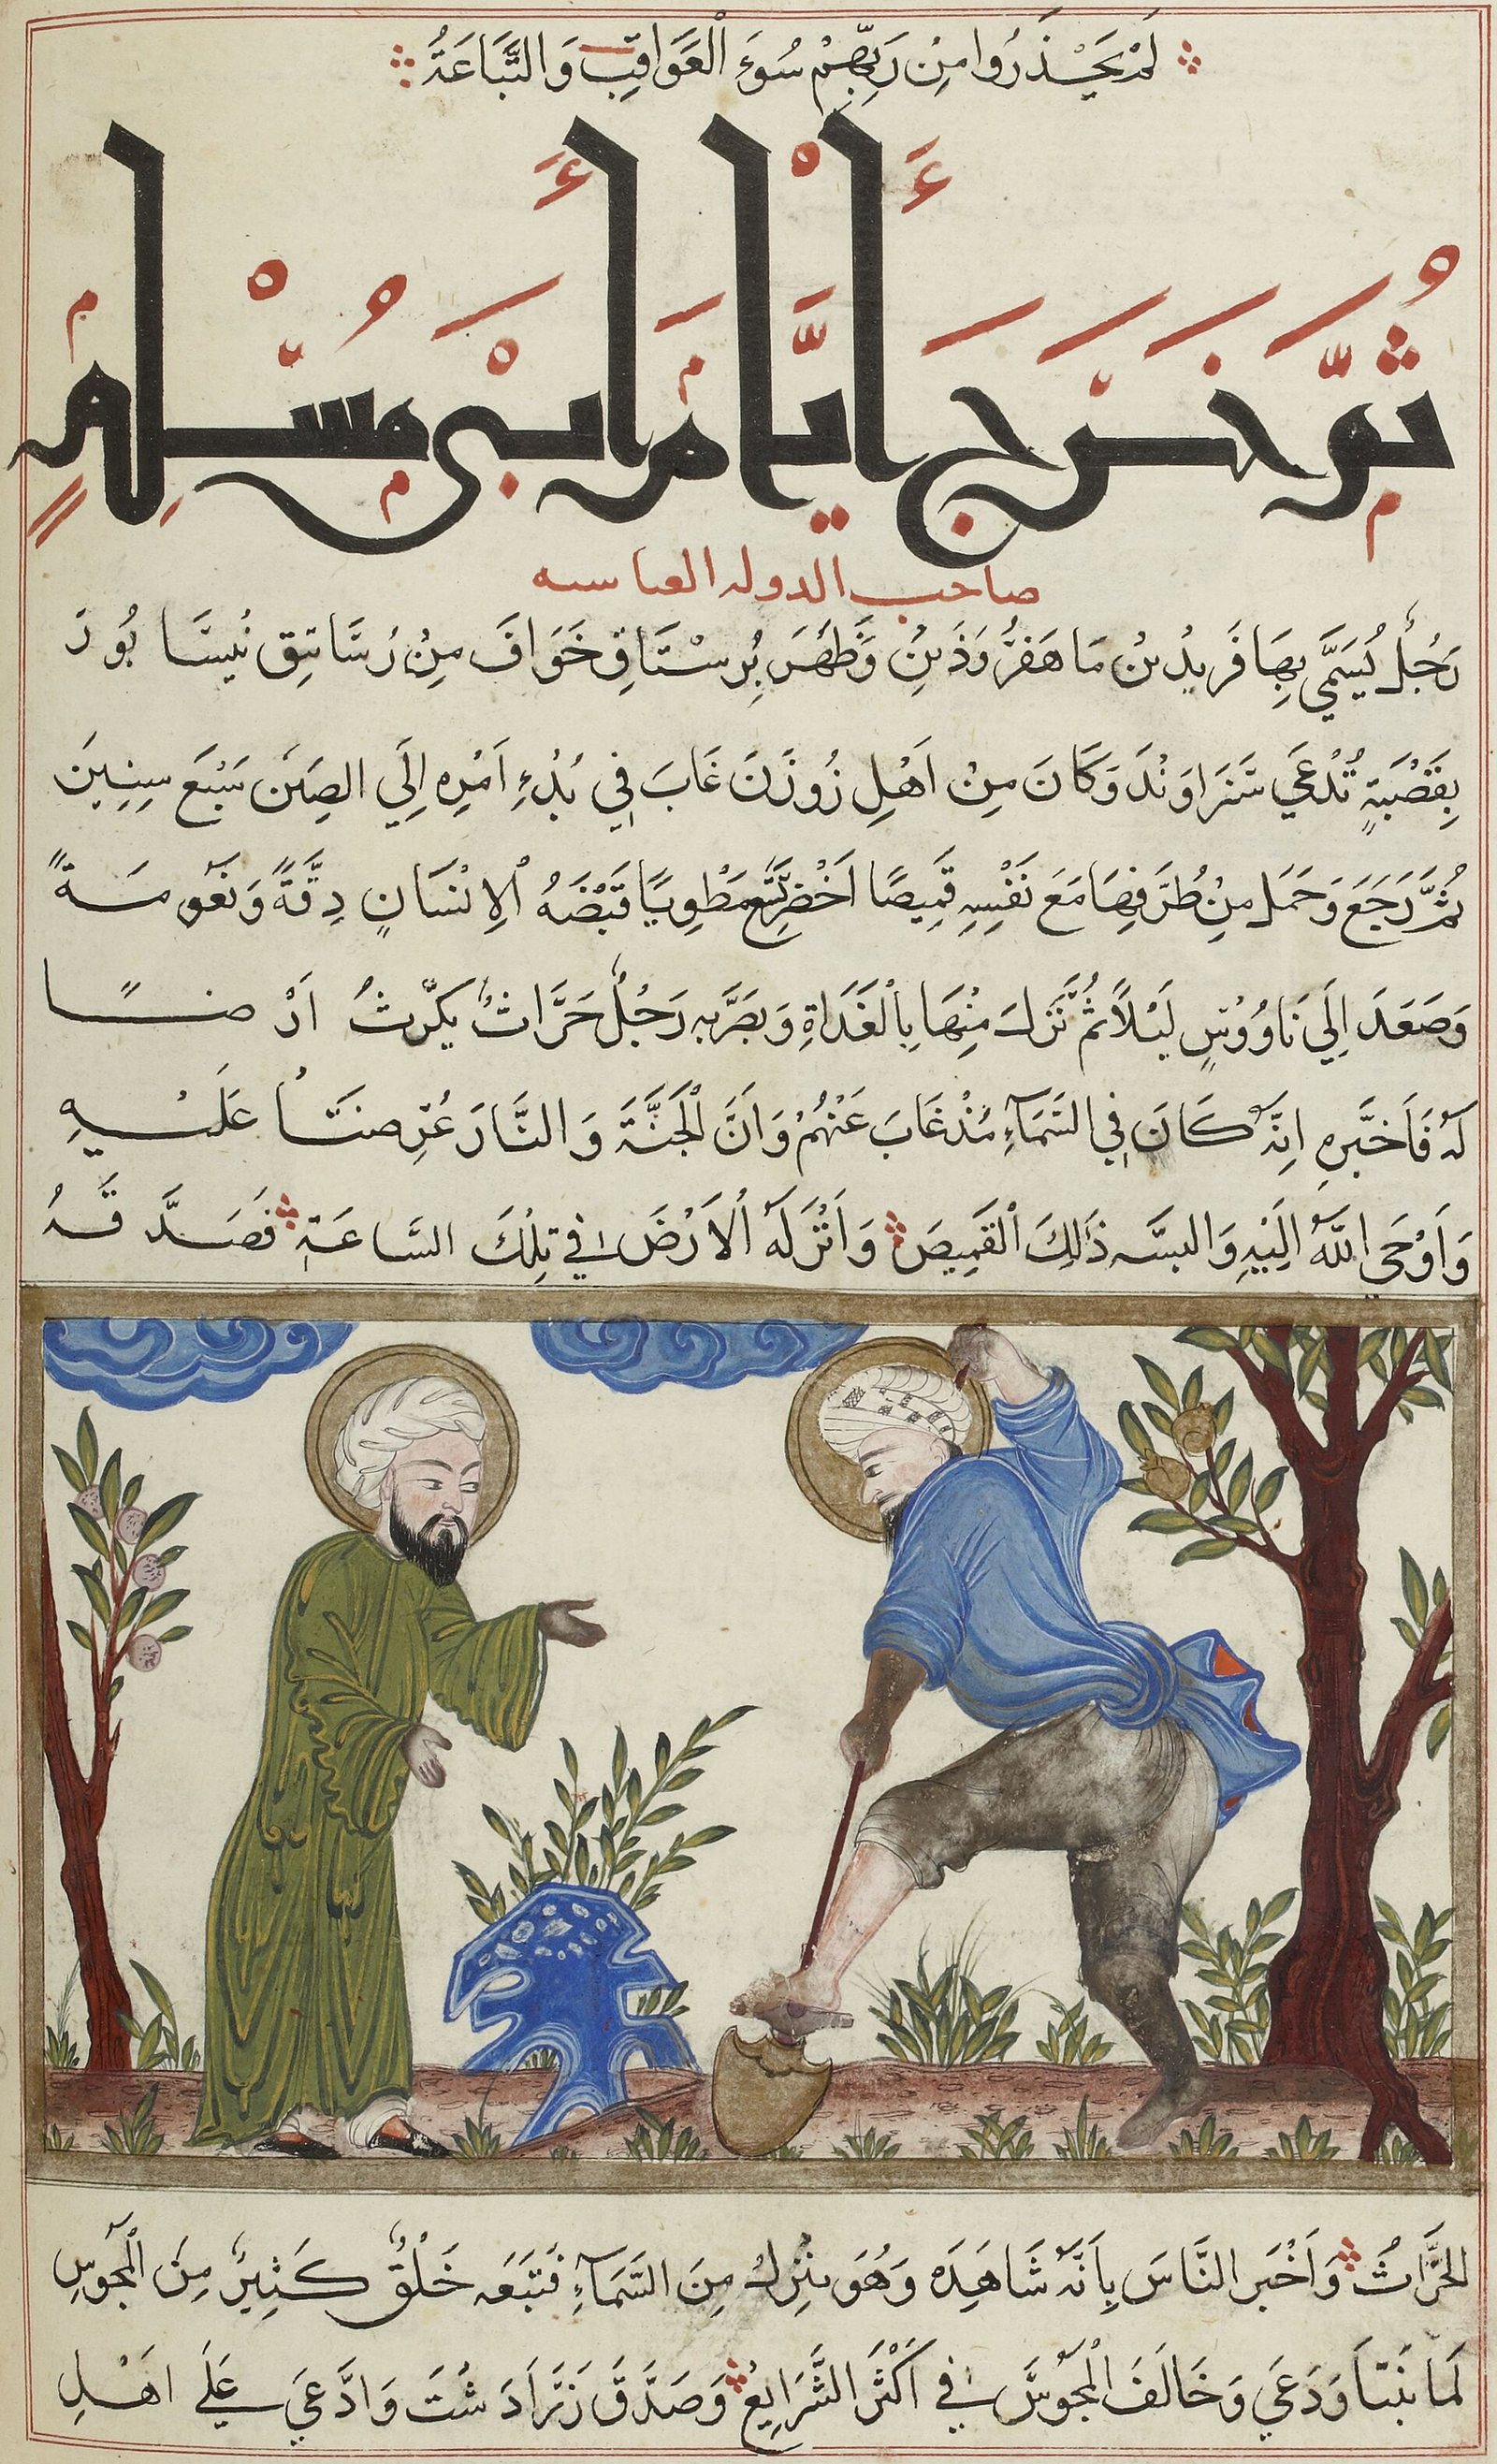 لَمْ يَحْذَرُوا مِنْ رَبِّهِمْ سُوءَ الْعَوَاقِبِ وَالتَّبَاعَةُ
ثُمَّ خَرَجَ أَيَّامَ أَبِي مُسْلِمٍ
صاحب الدولة العباسه
رَجُلٌ يُسَمَّي بِهَافَرِيدُ بْنُ مَاهَفَرْوَذِينِ وَظَهَرَ بِرُسْتَاقِ خَوَافَ مِنْ رُسَاتِقِ نَيْسَابُورَ
بِقَصْبَةٍ تُدْعَي سَرَاوَنْدَ وَكَانَ مِنْ اَهْلِ زُوزَنَ غَابَ فِي بُدْءِ اَمْرِهِ اِلَي الصِّينَ سَبْعَ سِنِينَ
ثُمَّ رَجَعَ وَحَمَلَ مِنْ طُرَفِهَا مَعَ نَفْسِهِ قَمِيصًا اَخْضَرَ يَسَعُ مَطْوِيًا قَبْضَهُ الْاِنْسَانِ دِقَّةً وَنَعُومَةً
وَصَعَدَ اِلَي نَاوُوْسٍ لَيْلاً ثُمَّ نَزَلَ مِنْهَا بِالْغَدَاةِ وَبَصَرَ بِهِ رَجُلٌ حَرَّاثٌ يَكْرِثُ اَرْضًا
لَهُ فَاَخْبَرِهِ اِنَّهُ كَانَ فِي السَّمَآءِ مُنْذُ غَابَ عَنْهُمْ وَاَنَّ الْجَنَّةَ وَالنَّارَ عُرِضَتَا عَلَيْهِ
وَاَوْحَي اللّٰهُ اِلَيْهِ وَالبَسَه ذَالِكَ الْقَمِيصَ وَاَنْزَلَهُ الْاَرْضَ فِي تِلْكَ السَّاعَةِ فَصَدَّقَهُ
الْحَرَّاثُ وَاَخْبَرَ النَّاسَ بِاَنَّهُ شَاهَدَه وَهُوَ يَنْزِلُ مِنَ السَّمَآءِ فَتَبَعَه خَلْقٌ كَثِيرٌ مِنَ الْمَجُوسِ
لَمَا تَنَبَّا وَدَعَي وَخَالَفَ الْمَجُوسَ فِي اَكْثَرِ الشَّرَايِعِ وَصَدَّقَ زَرَادَشْتَ وَادَّعَي عَلَي اَهْلِ